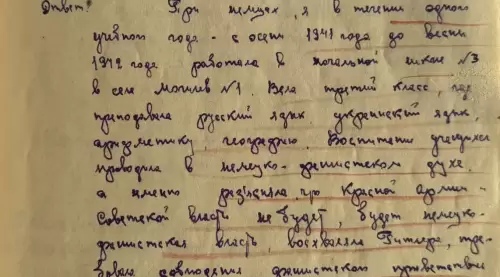 Ответ: При немцах, я в течении одного
учебного года - с осени 1941 года до весны
1942 года работала в начальной школе №3
в селе Могилев №1. Вела третий класс, где
преподавала русский язык украинский язык,
арифметику, географию. Воспитание учащихся
проводила в немецко-фашистском духе,
а именно разъясняла, что Красной армии -
Советской власть не будет, будет немецко-
фашистская власть, восхваляла Гитлера, тре-
бовала соблюдения фашистского приветствия